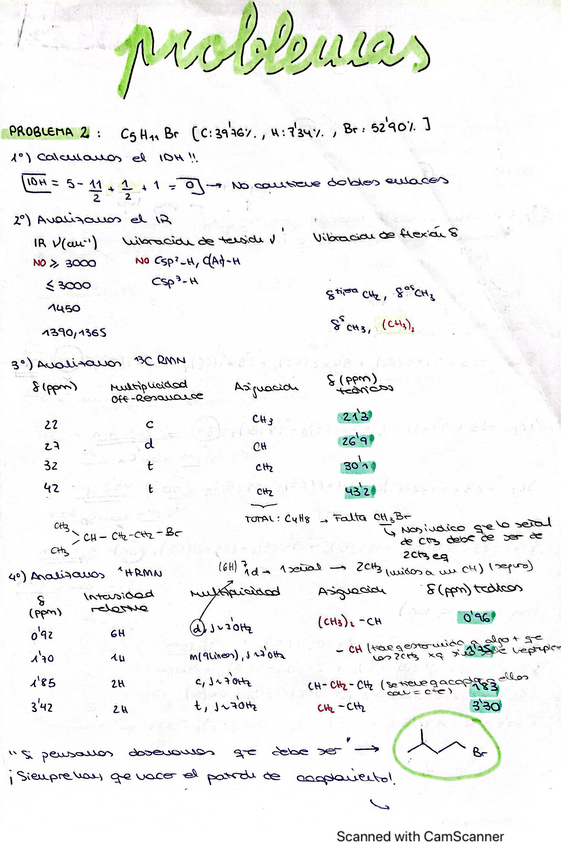 problemas
PROBLEMA 2: C5H11Br [C:39'76%, H:7'34%, Br:52'90%]
1º) Calculamos el IDH!!
IDH = 5 - 11/2 + 1/2 + 1 = 0 → No contiene dobles enlaces
2º) Analizamos el IR
IR ν(cm⁻¹) Vibración de tensión ν Vibración de flexión δ
NO ≥ 3000 NO Csp²-H, C(Ar)-H
≤ 3000 Csp³-H
1450 δ tijera CH2, δ as CH3
1390, 1365 δ s CH3, (CH3)2
3º) Analizamos ¹³C RMN
δ (ppm) Multiplicidad Off-Resonance Asignación δ (ppm) teóricos
22 c CH3 21'3
27 d CH 26'9
32 t CH2 30'1
42 t CH2 43'2
TOTAL: C4H8 → Falta CH3Br
↳ Nos indica que la señal
de CH3 debe de ser de
2CH3 eq
CH3
CH - CH2 - CH2 - Br
CH3
4º) Analizamos ¹H RMN
(6H) 1d → 1 señal → 2CH3 (unidos a un CH) (seguro)
δ (ppm) Intensidad relativa Multiplicidad Asignación δ (ppm) teóricos
0'92 6H d, J~7'0Hz (CH3)2 - CH 0'96
1'70 1H m (9 líneas), J~7'0Hz - CH 1'75
1'85 2H c, J~7'0Hz CH-CH2-CH2 1'83
3'42 2H t, J~7'0Hz CH2-CH2 3'30
"Si pensamos observamos que debe ser" → Br
¡Siempre hay que hacer el patrón de acoplamiento!
Scanned with CamScanner